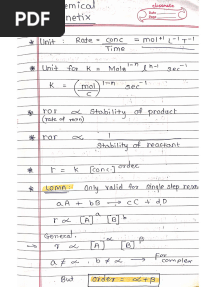 emical
netix
classmate
Date
Page
* Unit : Rate = conc = mol+1 L-1 T-1
Time
* Unit for K = Mole1-n ln-1 sec-1
K = (mol/L)1-n sec-1
* ror ∝ Stability of product
(rate of rean)
* ror ∝ 1
Stability of reactant
* r = k [conc.]order
* LOMA: Only valid for single step reac
aA + bB → cC + dD
r ∝ [A]a [B]b
General,
→ r ∝ [A]α [B]β
a ≠ α , b ≠ α → For complex
But order = α+β